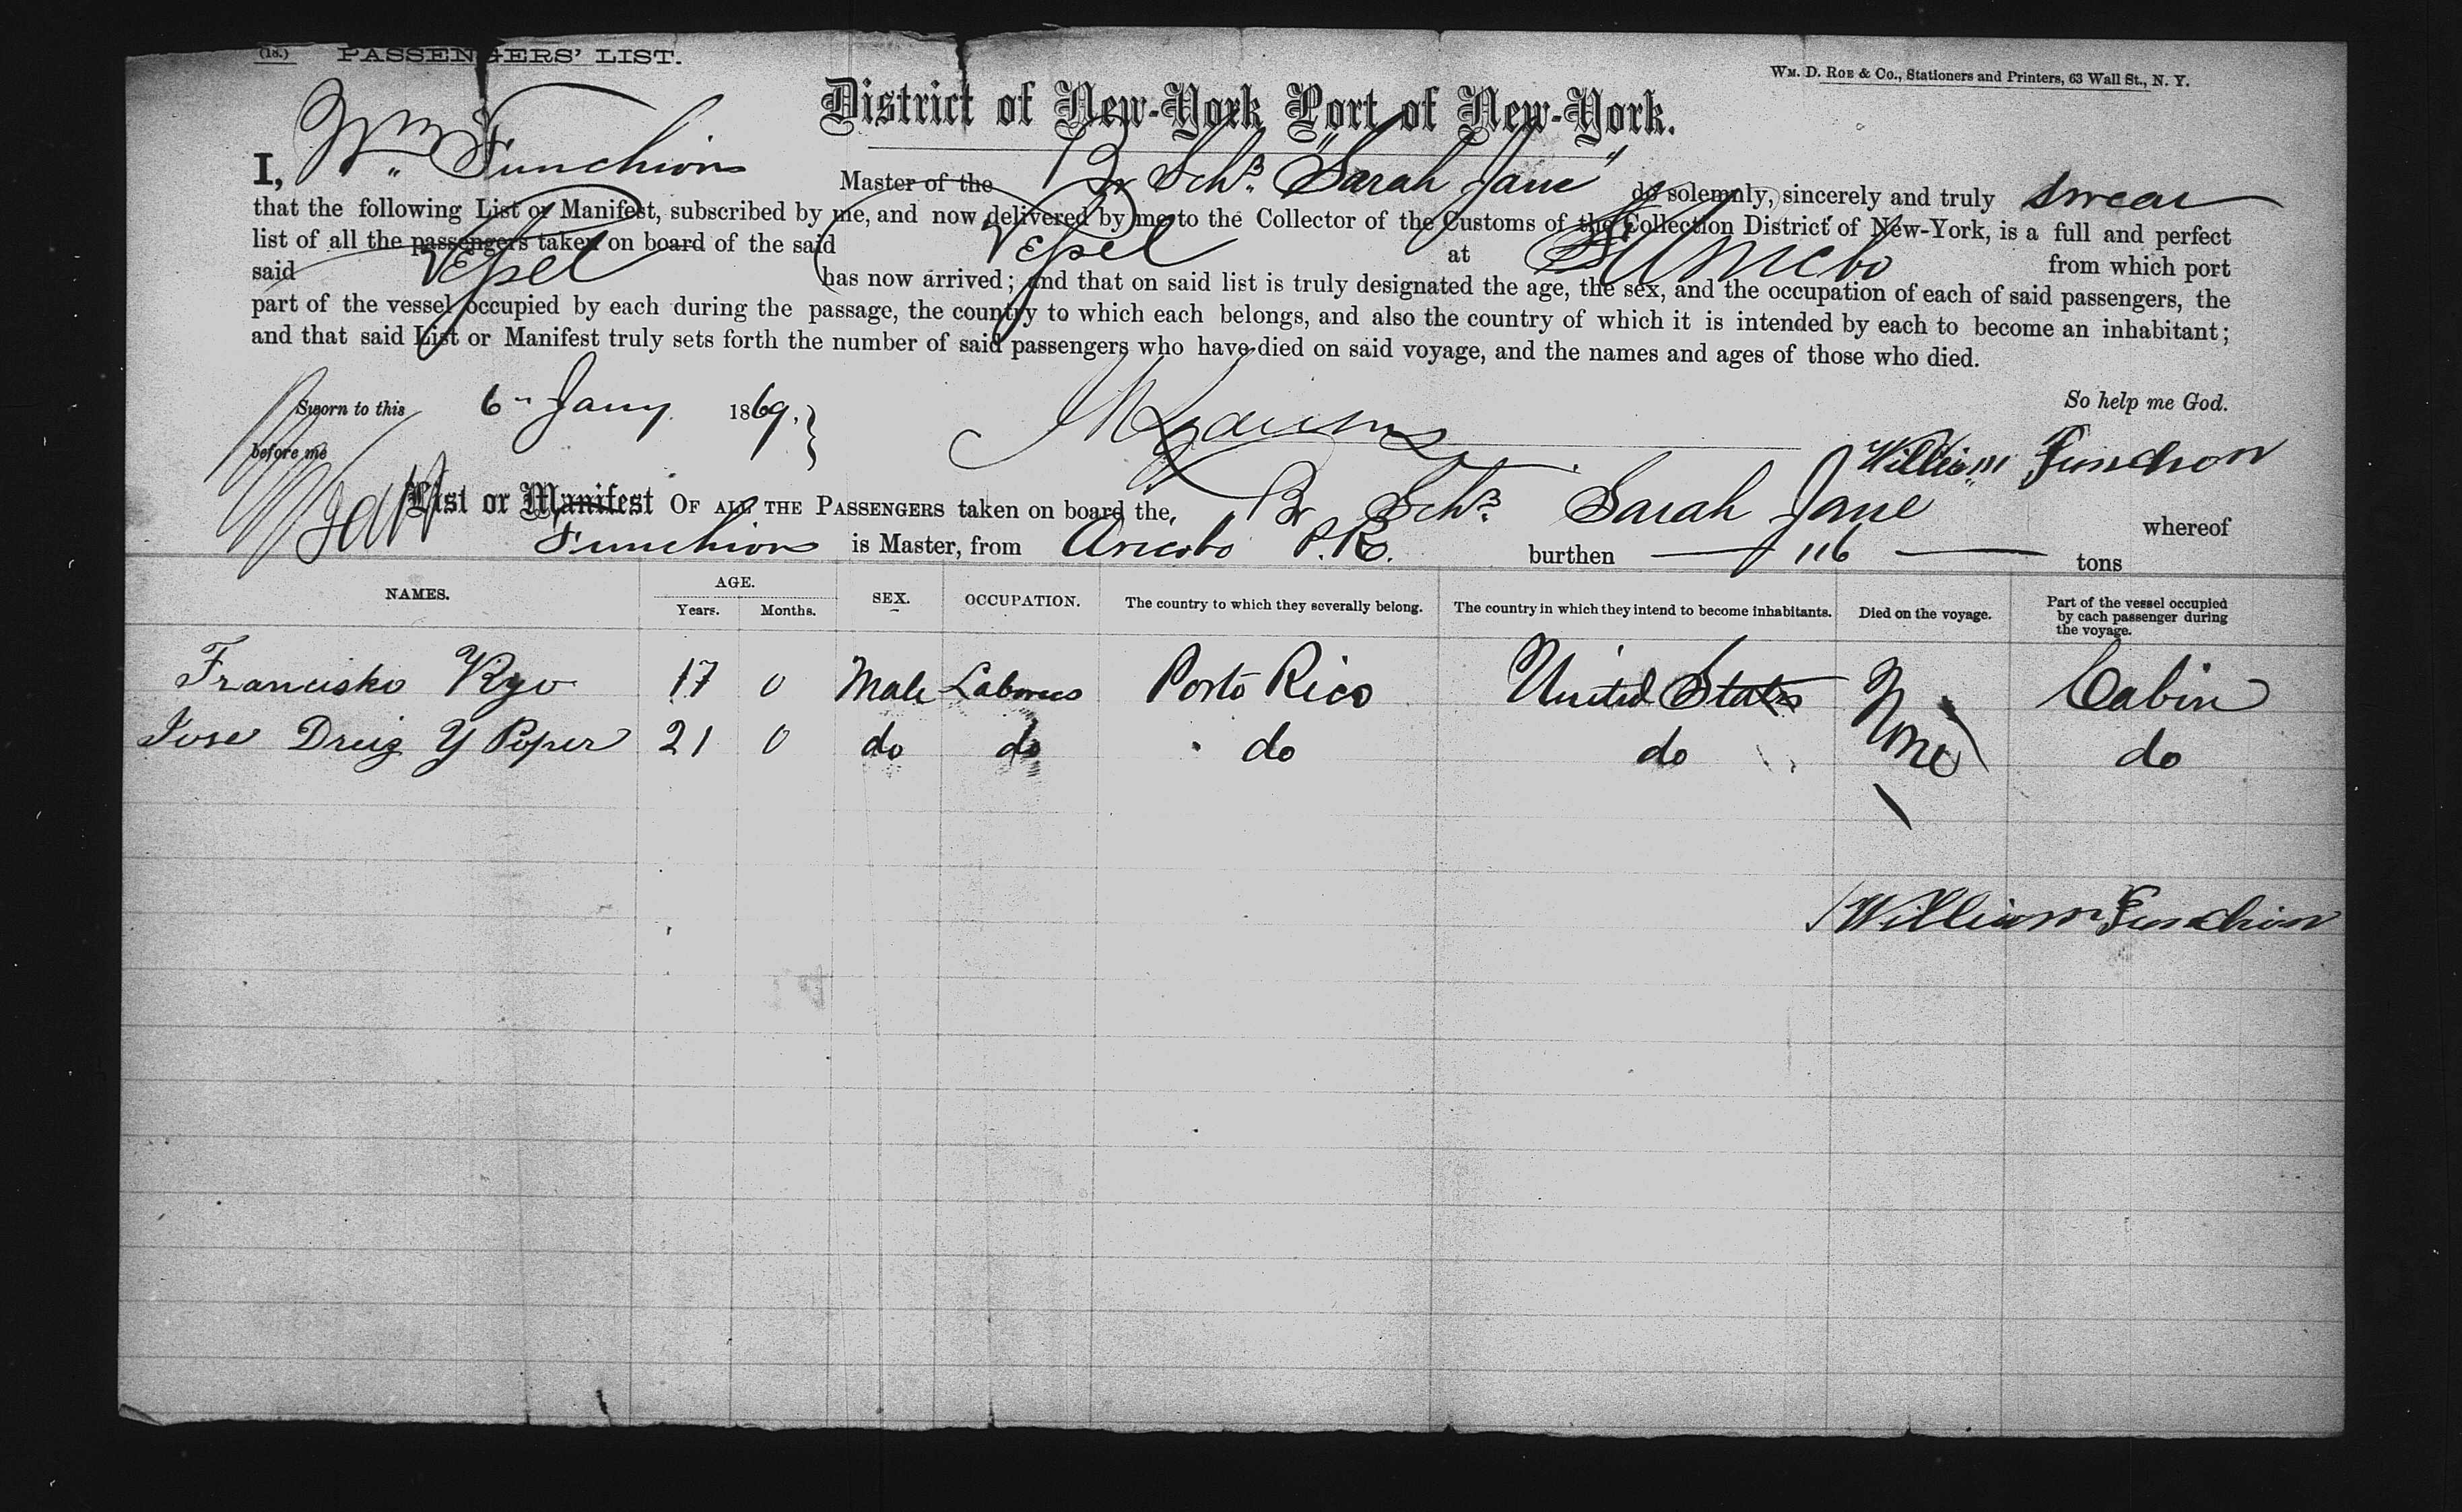 (18.) PASSENGERS' LIST.
Wm. D. Roe & Co., Stationers and Printers, 63 Wall St., N. Y.
District of New-York Port of New-York.
I, Wm Funchion Master of the Br Schr. "Sarah Jane" do solemnly, sincerely and truly swear
that the following List or Manifest, subscribed by me, and now delivered by me to the Collector of the Customs of the Collection District of New-York, is a full and perfect
list of all the passengers taken on board of the said Vessel at from which port
said Vessel has now arrived; and that on said list is truly designated the age, the sex, and the occupation of each of said passengers, the
part of the vessel occupied by each during the passage, the country to which each belongs, and also the country of which it is intended by each to become an inhabitant;
and that said List or Manifest truly sets forth the number of said passengers who have died on said voyage, and the names and ages of those who died.
So help me God.
Sworn to this 6" Jany. 1869.
before me
William Funchion
List or Manifest OF ALL THE PASSENGERS taken on board the, Br Schr. Sarah Jane whereof
Funchion is Master, from Aricibo P.R. burthen 116 tons
NAMES. AGE. Years. Months. SEX. OCCUPATION. The country to which they severally belong. The country in which they intend to become inhabitants. Died on the voyage. Part of the vessel occupied by each passenger during the voyage.
Francisko 17 0 Male Porto Rico United States None Cabin
Jose Y 21 0 do do do do do
William Funchion